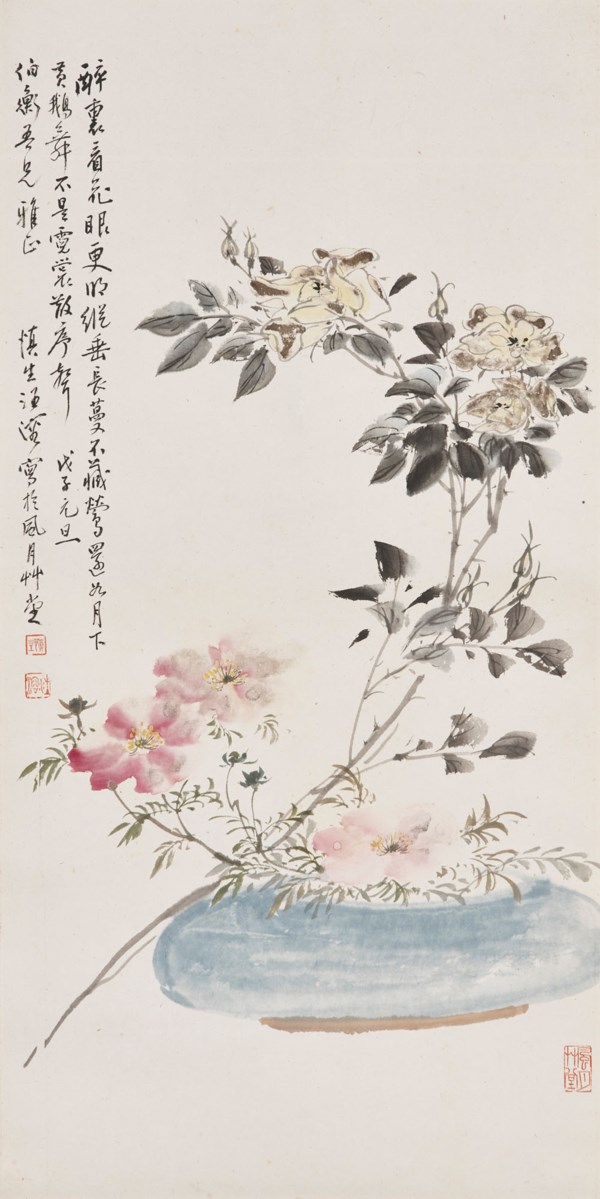 醉裏看花眼更明縱垂長蔓不藏鶯還如月下
黃鵝舞不是霓裳散序聲 戊子元旦
伯衡吾兄雅正 慎生汪溶寫於風月艸堂
風月艸堂